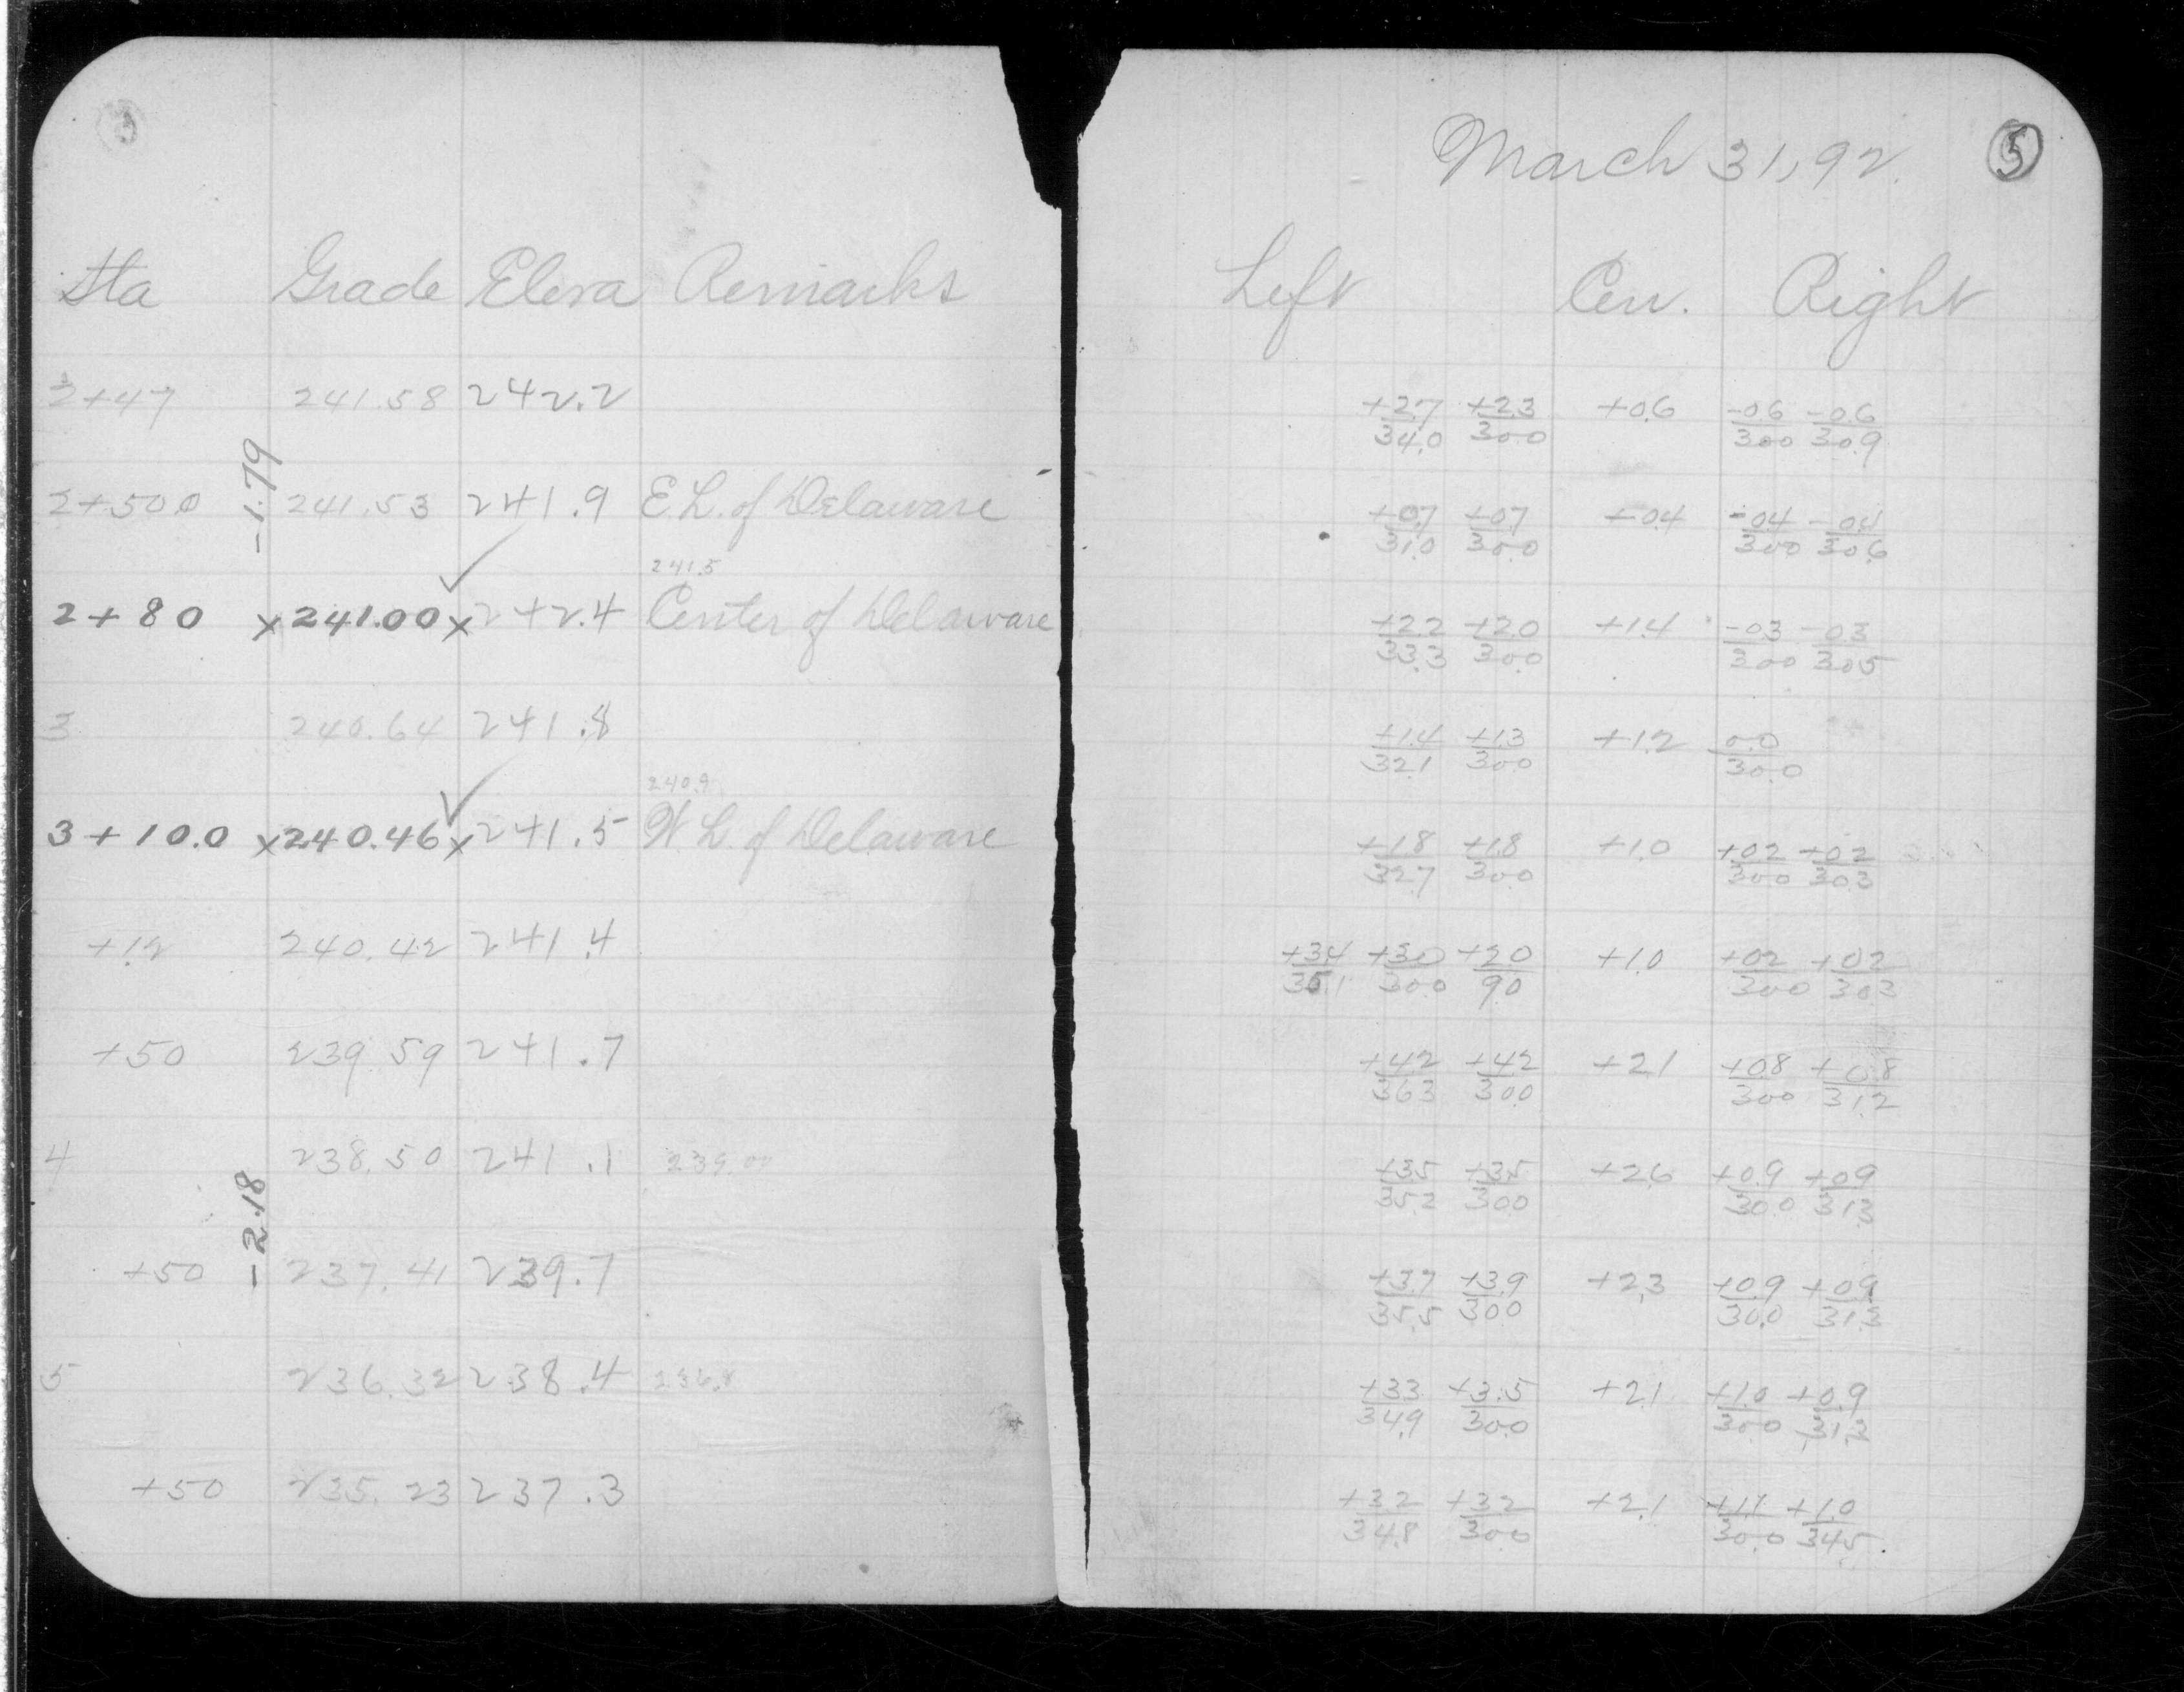 March 31, 92. 5
Sta Grade Eleva Remarks Left Cen. Right
2+47 241.58 242.2 +2.7/34.0 +2.3/30.0 +0.6 -0.6/30.0 -0.6/30.9
-1.79
2+50.0 241.53 241.9 E.L. of Delaware +0.7/31.0 +0.7/30.0 +0.4 -0.4/30.0 -0.4/30.6
241.5
2+80 x241.00x 242.4 Center of Delaware +2.2/33.3 +2.0/30.0 +1.4 -0.3/30.0 -0.3/30.5
3 240.64 241.8 +1.4/32.1 +1.3/30.0 +1.2 0.0/30.0
240.9
3+10.0 x240.46x 241.5 W.L. of Delaware +1.8/32.7 +1.8/30.0 +1.0 +0.2/30.0 +0.2/30.3
+12 240.42 241.4 +3.4/35.1 +3.0/30.0 +2.0/9.0 +1.0 +0.2/30.0 +0.2/30.3
+50 239.59 241.7 +4.2/36.3 +4.2/30.0 +2.1 +0.8/30.0 +0.8/31.2
4 238.50 241.1 +3.5/35.2 +3.5/30.0 +2.6 +0.9/30.0 +0.9/31.3
-2.18
+50 237.41 239.7 +3.7/35.5 +3.9/30.0 +2.3 +0.9/30.0 +0.9/31.3
5 236.32 238.4 +3.3/34.9 +3.5/30.0 +2.1 +1.0/30.0 +0.9/31.3
+50 235.23 237.3 +3.2/34.8 +3.2/30.0 +2.1 +1.1/30.0 +1.0/34.5